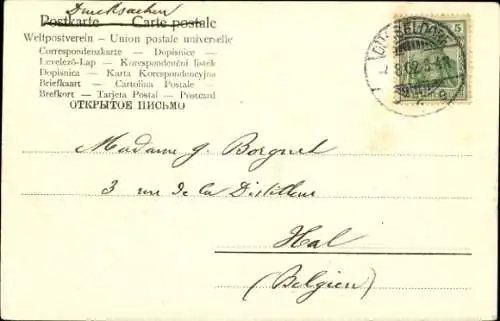 Drucksachen
Postkarte — Carte postale
Weltpostverein – Union postale universelle
Correspondenzkarte — Dopisnice —
Levelező-Lap — Korespondenční listek
Dopisnica — Karta Korespondencyjna
Briefkaart — Cartolina Postale —
Brefkort — Tarjeta Postal — Postcard
ОТКРЫТОЕ ПИСЬМО
5
DÜSSELDORF
Madame G. Borguet
3 rue de la Distillerie
Hal
(Belgien)